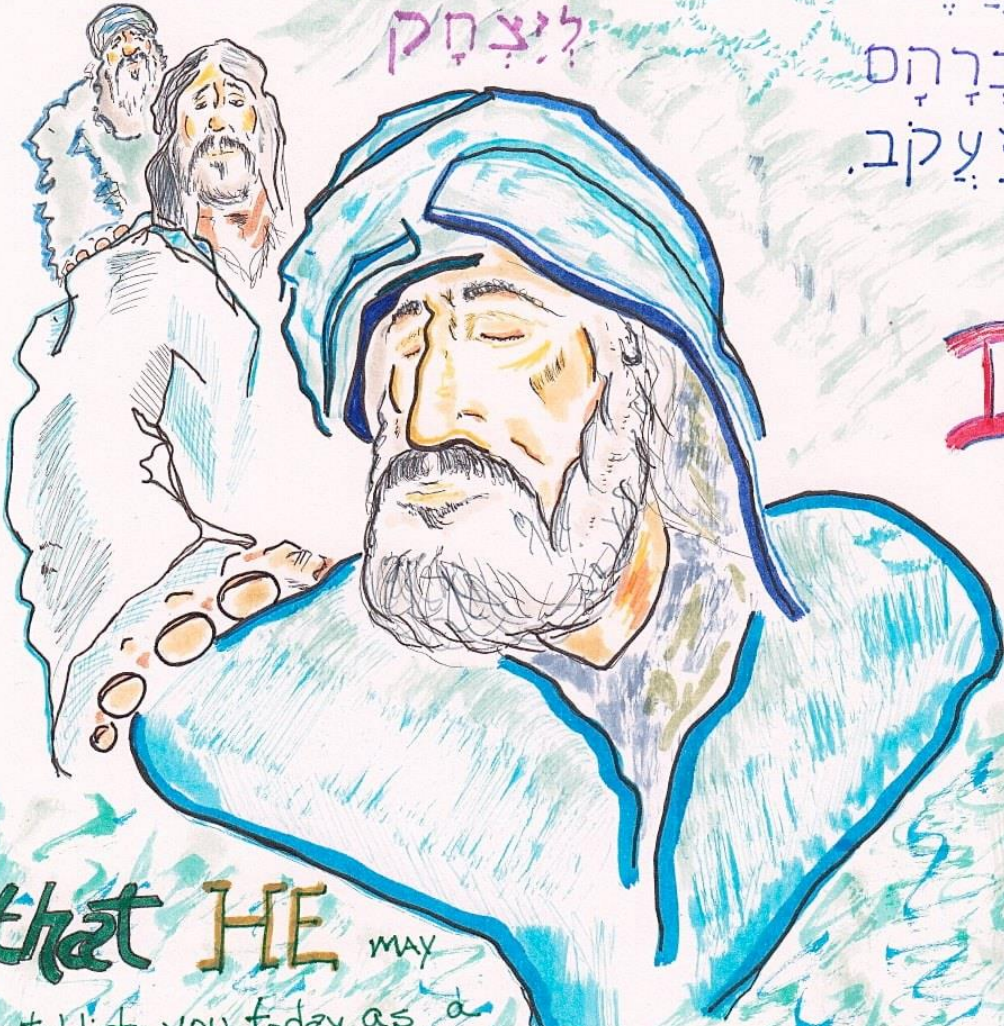 לְיִצְחָק
בְרָהָם
עֲקֹב.
I
that HE MAY
you today as a